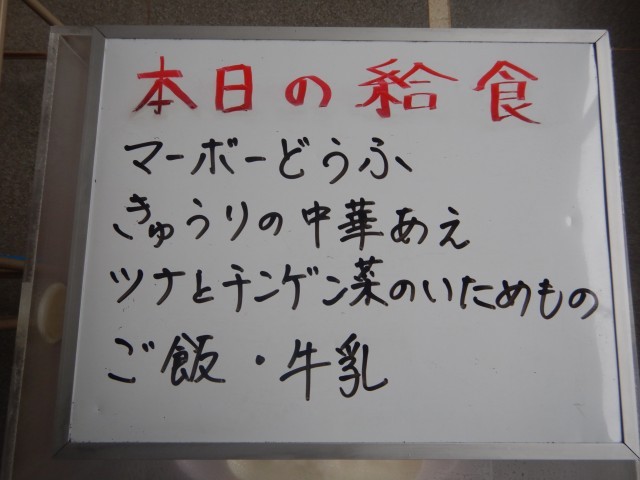 本日の給食
マーボーどうふ
きゅうりの中華あえ
ツナとチンゲン菜のいためもの
ご飯・牛乳